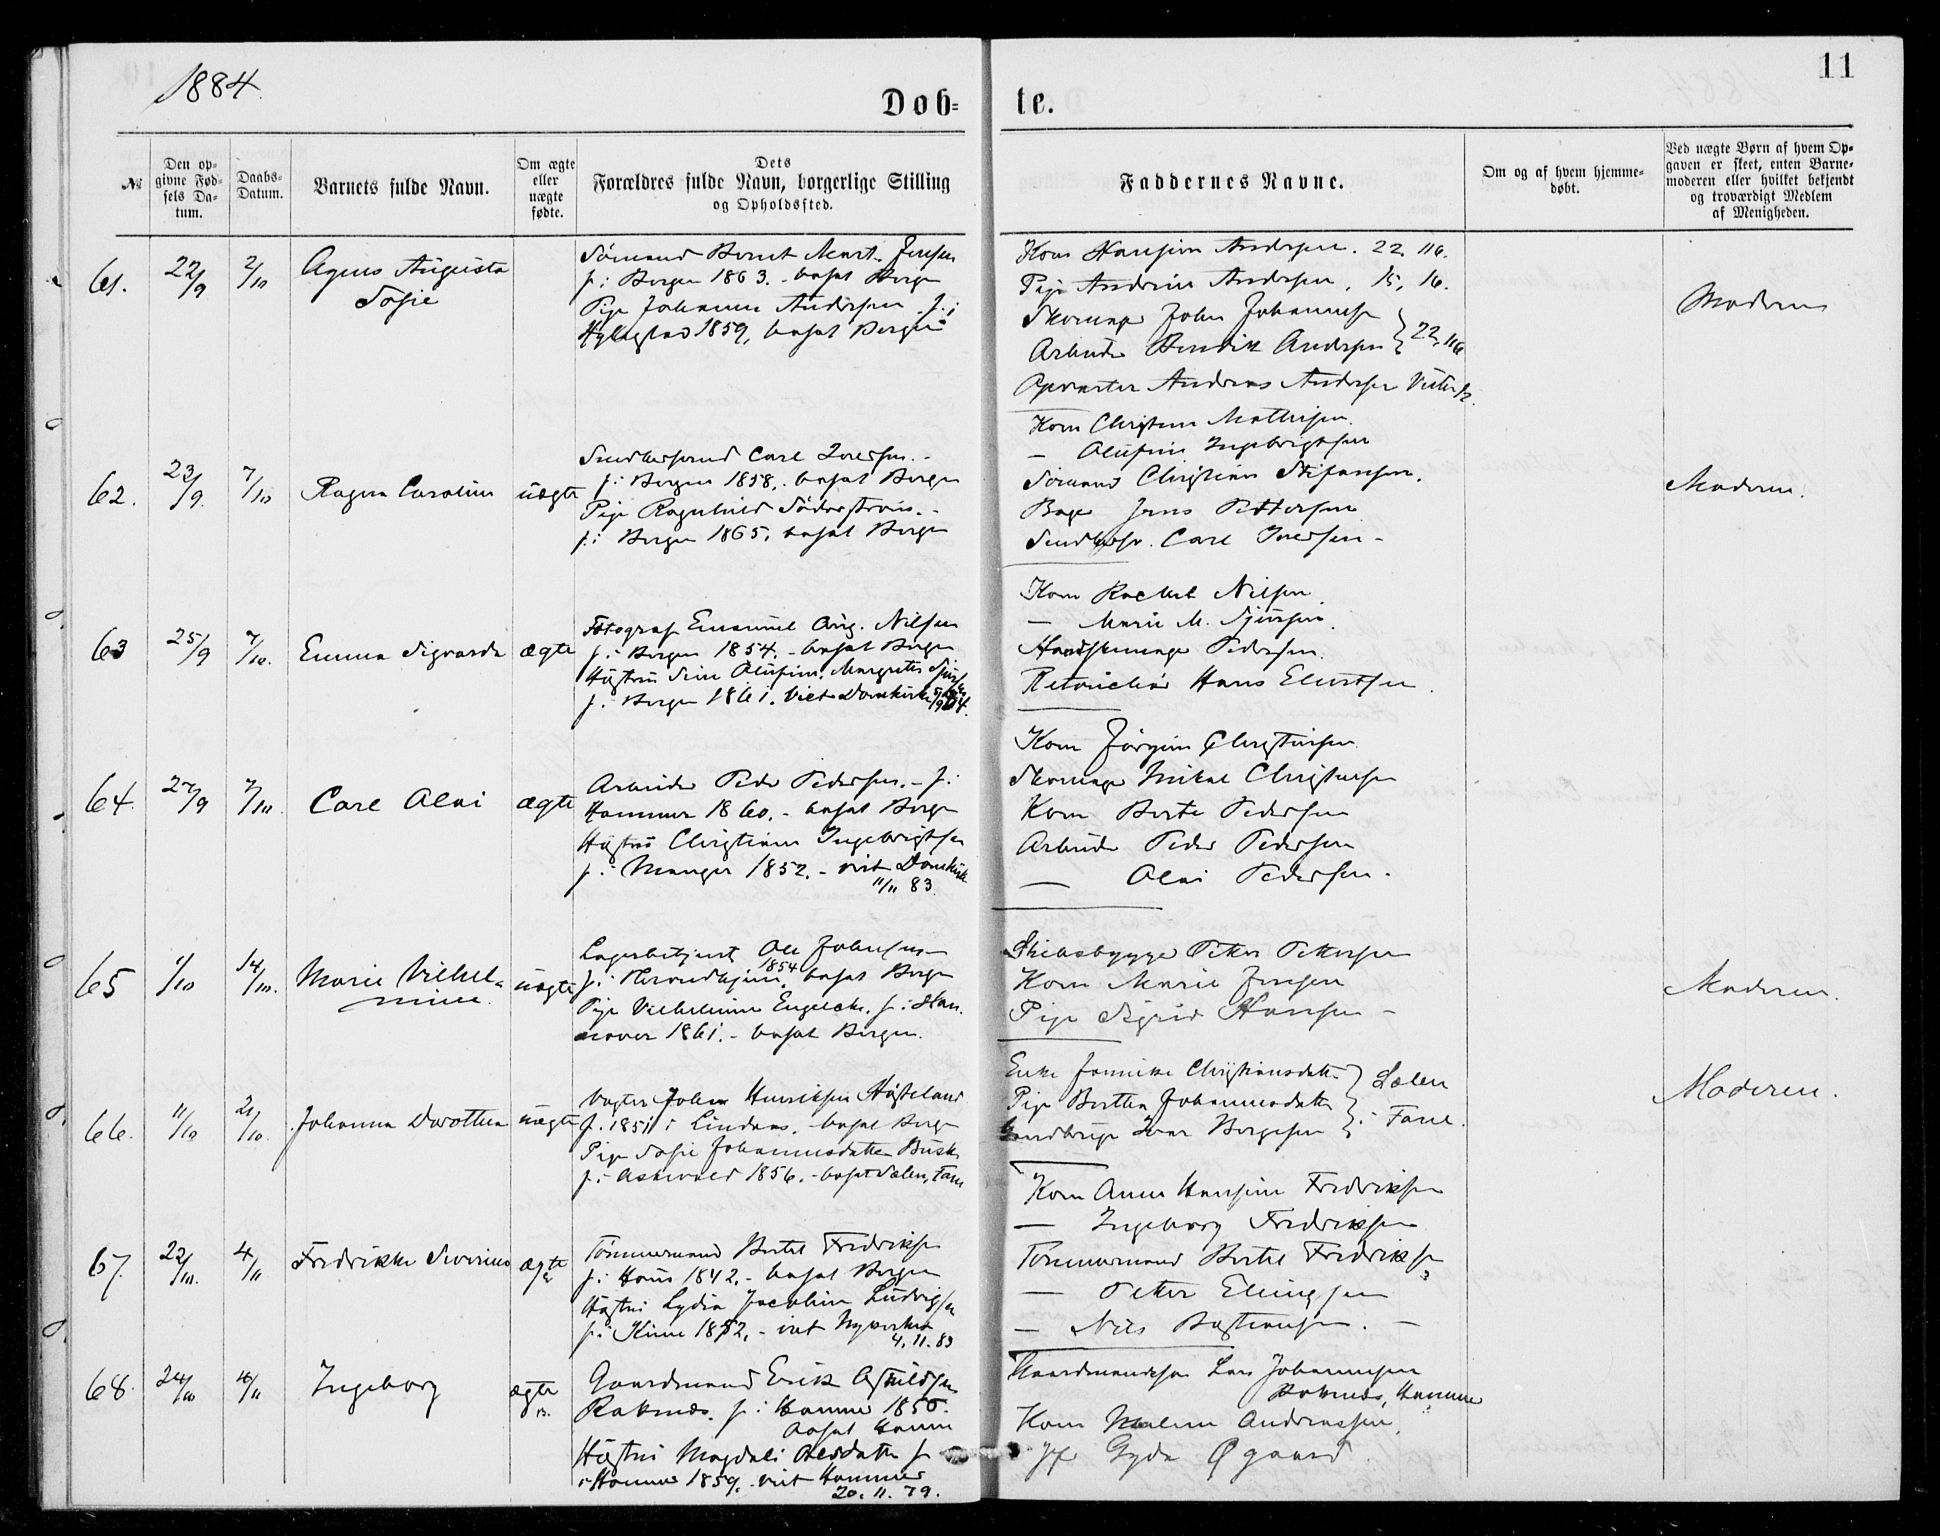 1884.
Døb-
te.
11
№
Den op-
givne Fød-
sels Da-
tum.
Daabs-
Datum.
Barnets fulde Navn.
Om ægte
eller
uægte
fødte.
Dets
Forældres fulde Navn, borgerlige Stilling
og Opholdssted.
Faddernes Navne.
Om og af hvem hjemme-
døbt.
Ved uægte Børn af hvem Op-
gaven er skeet, enten Barne-
moderen eller hvilket bekjendt
og troværdigt Medlem
af Menigheden.
61.
22/9
2/10
Agnes Augusta
Sofie
Sømand Bernt Mart. Jensen
f. i Bergen 1863. - bosat Bergen
Pige Johanne Andersen f. i
Hyllestad 1859, bosat Bergen
Kone Hansine Andersen. 22. 116.
Pige Andrine Andersen. 15, 16.
Skomager John Johannesen
Arbeider Bendik Andersen } 22, 116
Opvarter Andreas Andersen
Moderen
62.
23/9.
7/10
Ragna Caroline
uægte
Carl Iversen. -
f. i Bergen 1858. - bosat Bergen
Pige Ragnhild Söderström. -
f. i Bergen 1865, bosat Bergen
Kone Christine Mathisen.
— Olufine Ingebrigtsen
Sømand Christian Stefansen.
Bager Jens Pettersen
Carl Iversen -
Moderen.
63
25/9
7/10.
Emma Sigvarda
ægte
Fotograf Emanuel Aug. Nilsen
f. i Bergen 1854. - bosat Bergen
Hustru Sine Olufine Margrete
f. i Bergen 1861. viet Domkirken
Kone Rachel Nilsen
— Marie M. Sjursen.
Handskemager Pedersen.
Retouchør Hans Elertsen.
64.
27/9
7/10.
Carl Olai
ægte
Arbeider Peder Pedersen. - f. i
Hammer 1860. - bosat Bergen
Hustru Christiane Ingebrigtsen
f. i Manger 1852. - viet Domkirk
11/11 83.
Kone Jørgine Christensen
Skomager Mikal Christensen
Kone Berte Pedersen
Arbeider Peder Pedersen
— Olai Pedersen.
65
1/10
14/10.
Marie Vilhel-
mine
uægte
Lagerbetjent Ole Johnsen
f. i Throndhjem 1854, bosat Bergen
Pige Vilhelmine Engelcke. f. i Han-
nover 1861. - bosat Bergen.
Skibsbygger Petter Pettersen
Kone Marie Jensen
Pige Sigrid Hansen -
Moderen.
66.
11/10
21/10.
Johanna Dorothea
uægte
Vogter Johan Henriksen
f. 1851 i Lindaas. - bosat Bergen
Pige Sofie Johannesdatter Busk
f. i Askevold 1856. - bosat Sælen, Fane
Enke Jannike Christiansdatter
Pige Berthe Johannesdatter
Gaardbruger Iver Børgesen } Sælen i Fane.
Moderen.
67.
22/10.
4/11
Fredrikke Severine
ægte
Tømmermand Bertel Fredriksen
f. i Haus 1842. - bosat Bergen
Hustru Lydia Jacobine Ludvigsen
f. i Kinn 1852. - viet Nykirken
4. 11. 83
Kone Anne Hansine Fredriksen
— Ingeborg Fredriksen
Tømmermand Bertel Fredriksen
— Petter Ellingsen
— Nils Bastiansen. -
68.
24/10
4/11
Ingeborg
ægte
Gaardmand Erik
Raknes. f. i Hammer 1856.
bosat Hammer
Hustru Magdali Olsdatter f.
i Hammer 1859. viet Hammer
20. 11. 79.
Gaardmandssøn Lars Johannessen
Raknes, Hammer
Kone Malene Andreassen
Gyda Øgaard